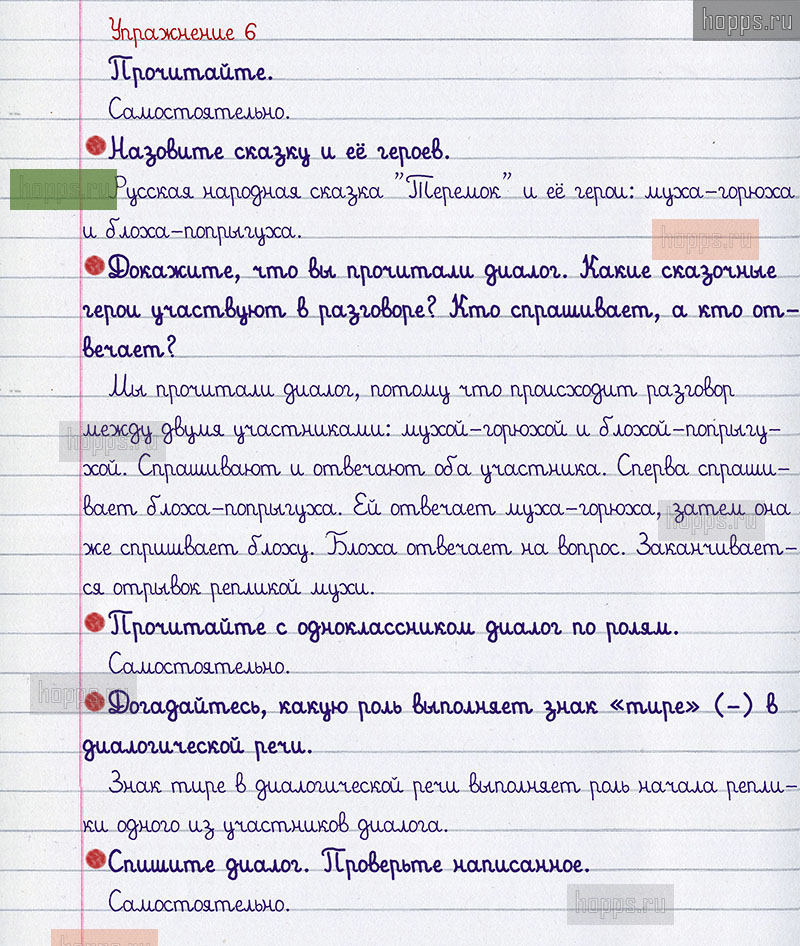 hopps.ru
Упражнение 6
Прочитайте.
Самостоятельно.
Назовите сказку и её героев.
hopps.ru
Русская народная сказка "Теремок" и её герои: муха-горюха
и блоха-попрыгуха.
hopps.ru
Докажите, что вы прочитали диалог. Какие сказочные
герои участвуют в разговоре? Кто спрашивает, а кто от-
вечает?
Мы прочитали диалог, потому что происходит разговор
между двумя участниками: мухой-горюхой и блохой-попрыгу-
hopps.ru
хой. Спрашивают и отвечают оба участника. Сперва спраши-
вает блоха-попрыгуха. Ей отвечает муха-горюха, затем она
hopps.ru
же спришивает блоху. Блоха отвечает на вопрос. Заканчивает-
ся отрывок репликой мухи.
Прочитайте с одноклассником диалог по ролям.
Самостоятельно.
hopps.ru
Догадайтесь, какую роль выполняет знак «тире» (-) в
диалогической речи.
Знак тире в диалогической речи выполняет роль начала репли-
ки одного из участников диалога.
Спишите диалог. Проверьте написанное.
Самостоятельно.
hopps.ru
hopps.ru